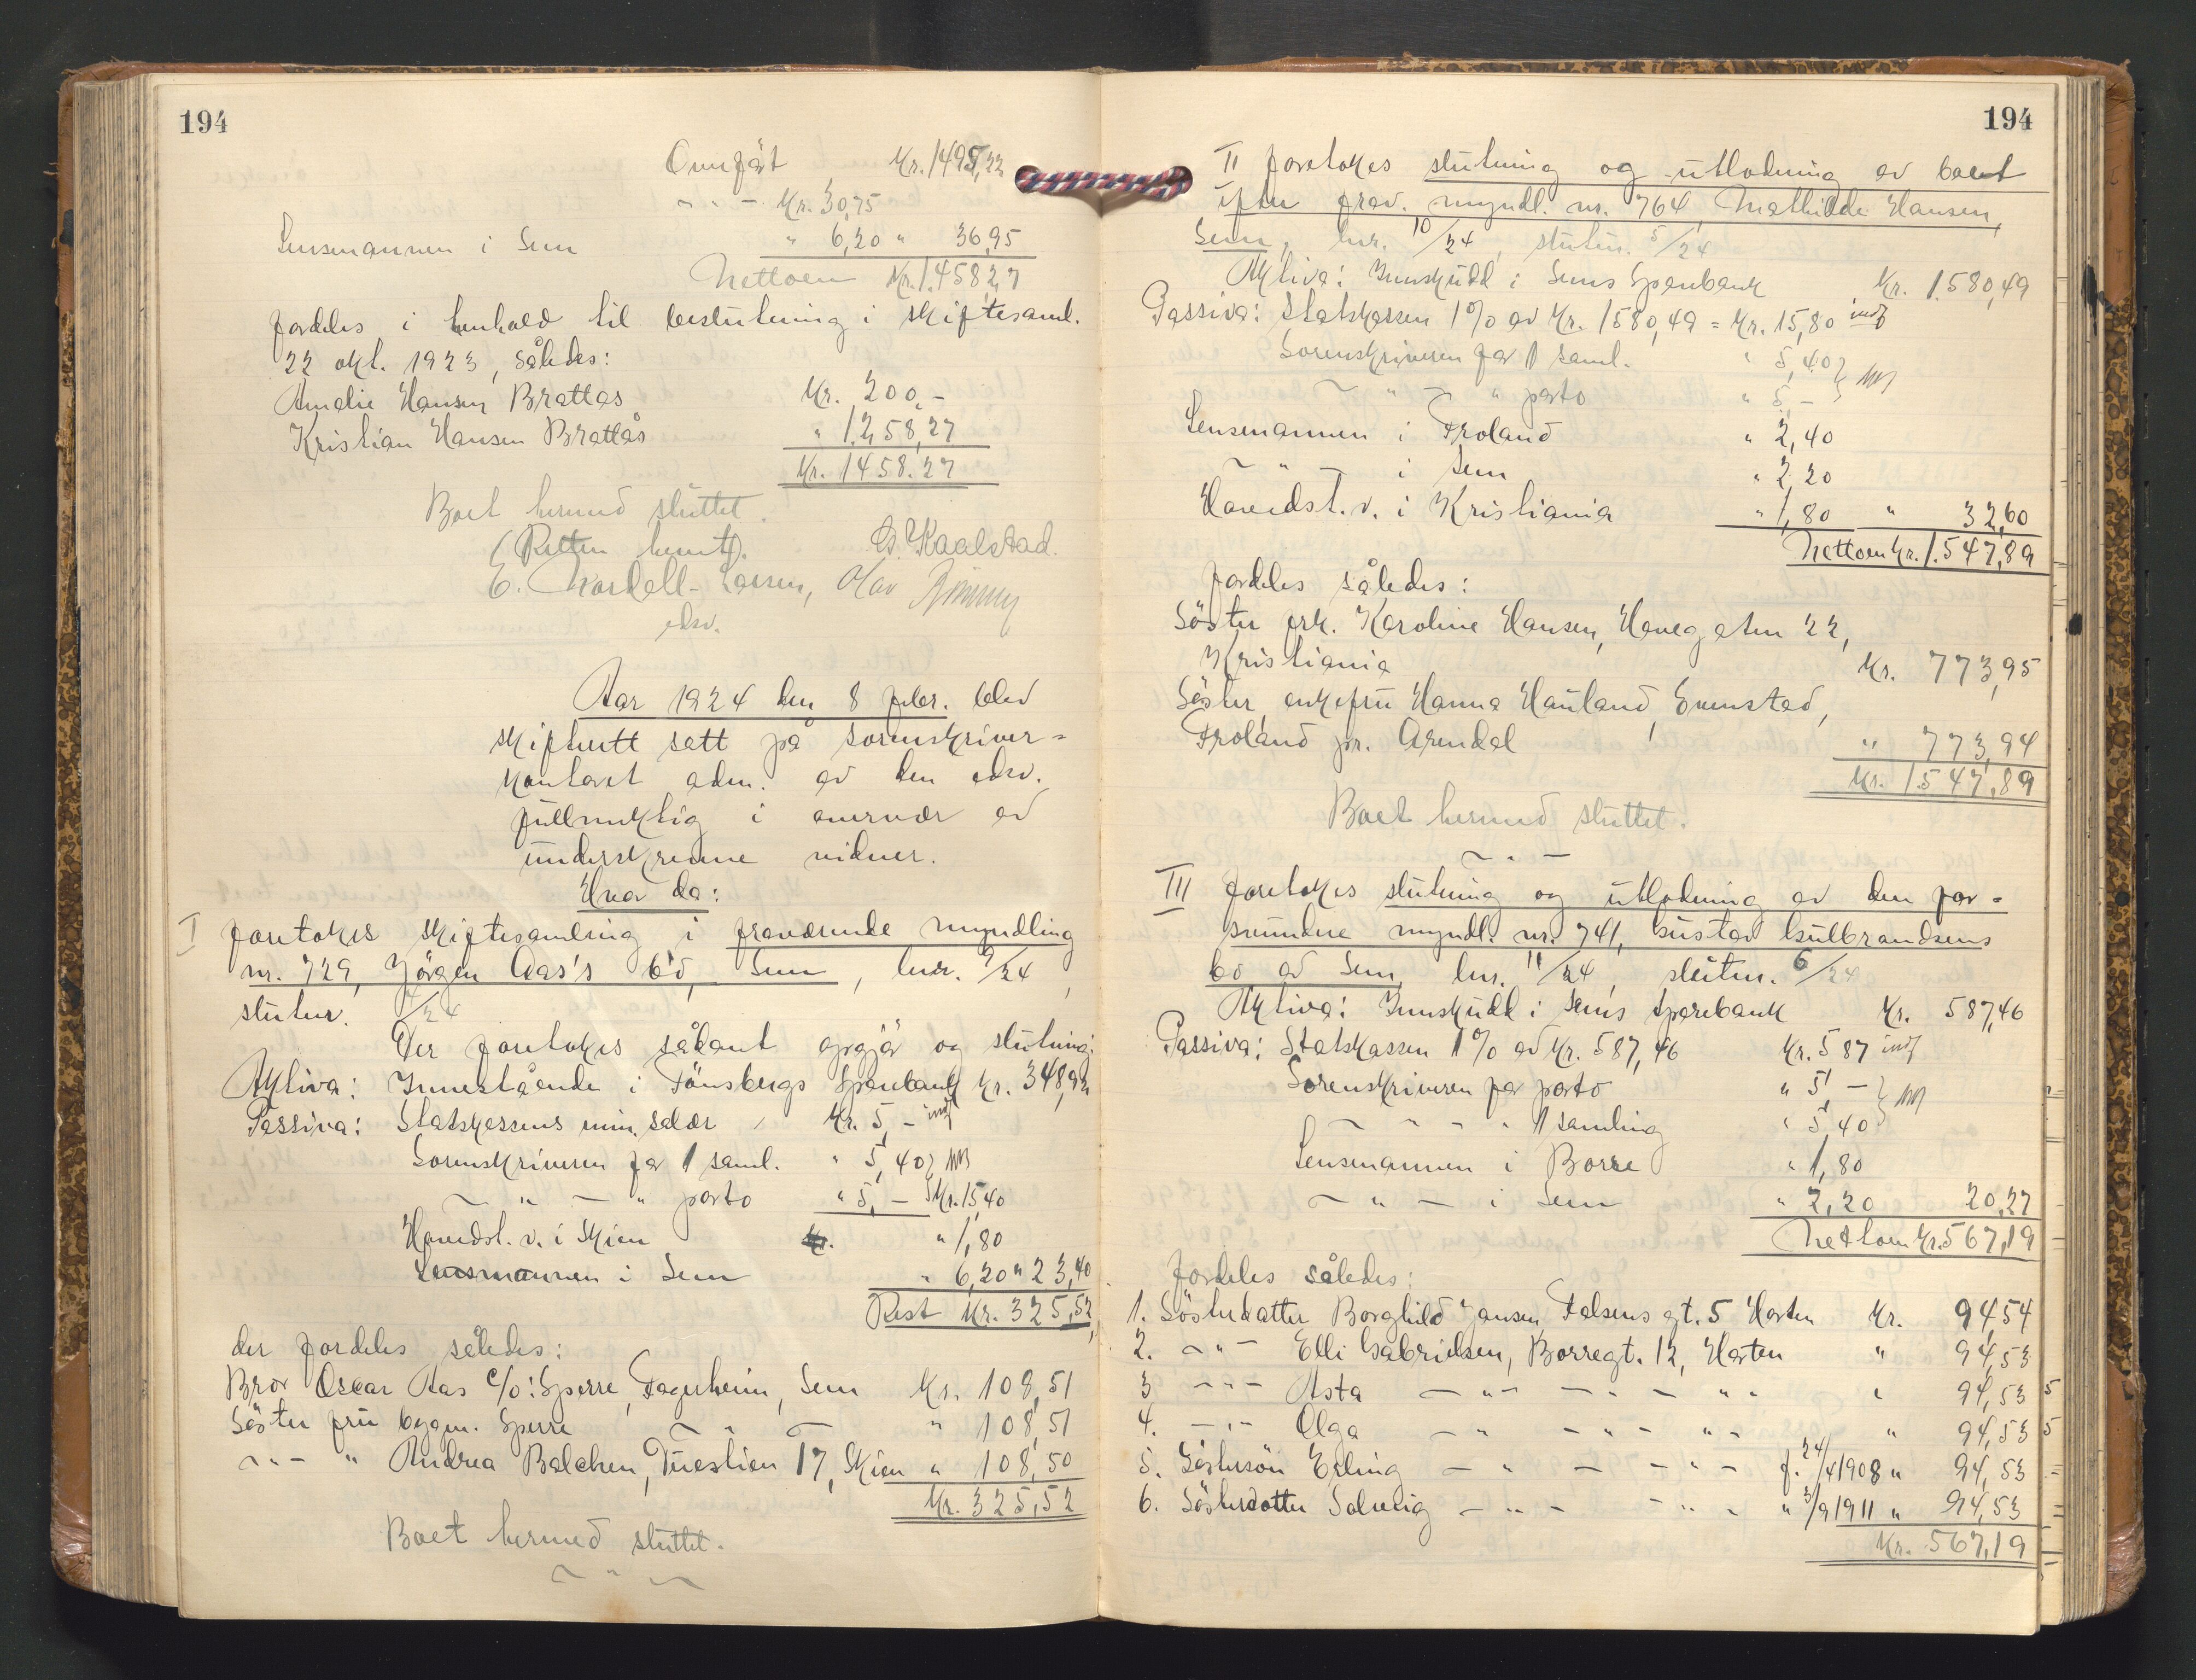 194
Overført Kr. 1495,22
" Kr. 30,75
Lensmannen i Sem " 6,20 " 36,95
Nettoen Kr. 1.458,27
fordeles i henhold til beslutning i skiftesaml.
22 okt. 1923, således:
Amalie Hansen Brattås Kr. 200,-
Kristian Hansen Brattås " 1.258,27
Kr. 1458.27
Boet hermed sluttet.
(Retten hevet).
G. Kaalstad.
E. Wardell-Larsen, Olav
edsv.
Aar 1924 den 8 febr. blev
skifterett satt på sorenskriver-
kontoret adm. av den edsv.
fullmektig i overvær av
underskrevne vidner.
Hvor da:
I foretokes skiftesamling i fraværende myndling
nr. 729, Jörgen Aas's bo, Sem, lnr. 9/24,
slutnr. 4/24
Der foretokes sådant opgjör og slutning:
Aktiva: Innestående i Tönsbergs Sparebank Kr. 348,92
Passiva: Statskassens min. salær Kr. 5,- indf
Sorenskriveren for 1 saml. " 5,40
" " porto " 5,- Kr. 15,40
Hovedst.v. i Skien Kr. " 1,80
Lensmannen i Sem " 6,20 " 23,40
Rest Kr. 325,52
der fordeles således:
Bror Oscar Aas c/o: Sperre, Fagerheim, Sem Kr. 108,51
Söster fru bygm. Sperre " 108,51
" " Andrea Balchen, Tuestien 17, Skien " 108,50
Kr. 325,52
Boet hermed sluttet.
194
II foretokes slutning og utlodning av boet
efter frav. myndl. nr. 764, Mathilde Hansen,
Sem, lnr. 10/24, slutnr. 5/24
Aktiva: Innskudd i Sems Sparebank Kr. 1.580,49
Passiva: Statskassen 1% av Kr. 1580,49 = Kr. 15,80 indf
Sorenskriveren for 1 saml. " 5,40
" " porto " 5,-
Lensmannen i Froland " 2,40
" i Sem " 2,20
Hovedst.v. i Kristiania " 1,80 " 32,60
Nettoen Kr. 1.547,89
fordeles således:
Söster frk. Karoline Hansen, Havegaten 22,
Kristiania Kr. 773,95
Söster, enkefru Hanna Hauland, Evenstad,
Froland pr. Arendal " 773,94
Kr. 1.547,89
Boet hermed sluttet.
III foretokes slutning og utlodning av den for-
svundne myndl. nr. 741, Gustav Gulbrandsens
bo av Sem, lnr. 11/24, slutnr. 6/24
Aktiva: Innskudd i Sems Sparebank Kr. 587,46
Passiva: Statskassen 1% av Kr. 587,46 Kr. 5 87 indf
Sorenskriveren for porto " 5,-
" 1 samling " 5,40
Lensmannen i Borre " 1,80
" i Sem " 2,20 20,27
Nettoen Kr. 567,19
Fordeles således:
1. Sösterdatter Borghild Jansen, Falsens gt. 5 Horten Kr. 94,54
2. " Elli Gabrielsen, Borregt. 12, Horten " 94,53
3 " Asta " " " " 94,53 5
4. " Olga " " " " 94,53 5
5. Söstersön Erling " " f. 24/4 1908 " 94,53
6. Sösterdatter Solveig " " " 3/9 1911 " 94,53
Kr. 567,19